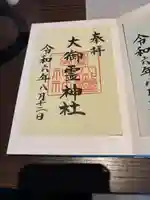 奉拝
大御霊神社
令和六年八月十二日